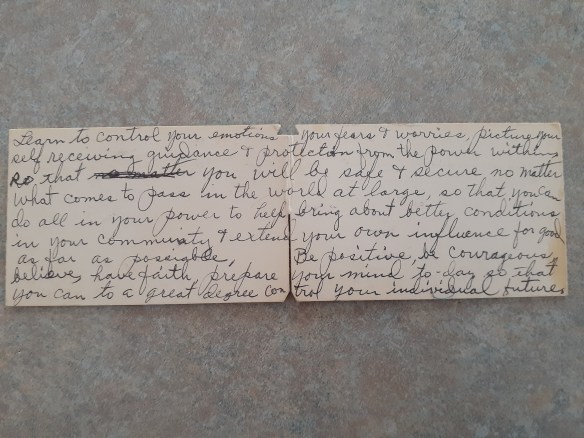 Learn to control your emotions your fears & worries, picture your
self receiving guidance & protection from the power within
so that no matter you will be safe & secure no matter
what comes to pass in the world at large, so that you can
do all in your power to help bring about better conditions
in your community & extend your own influence for good
as far as possible, Be positive, be courageous,
believe, have faith, prepare your mind to-day so that
you can to a great degree control your individual future.